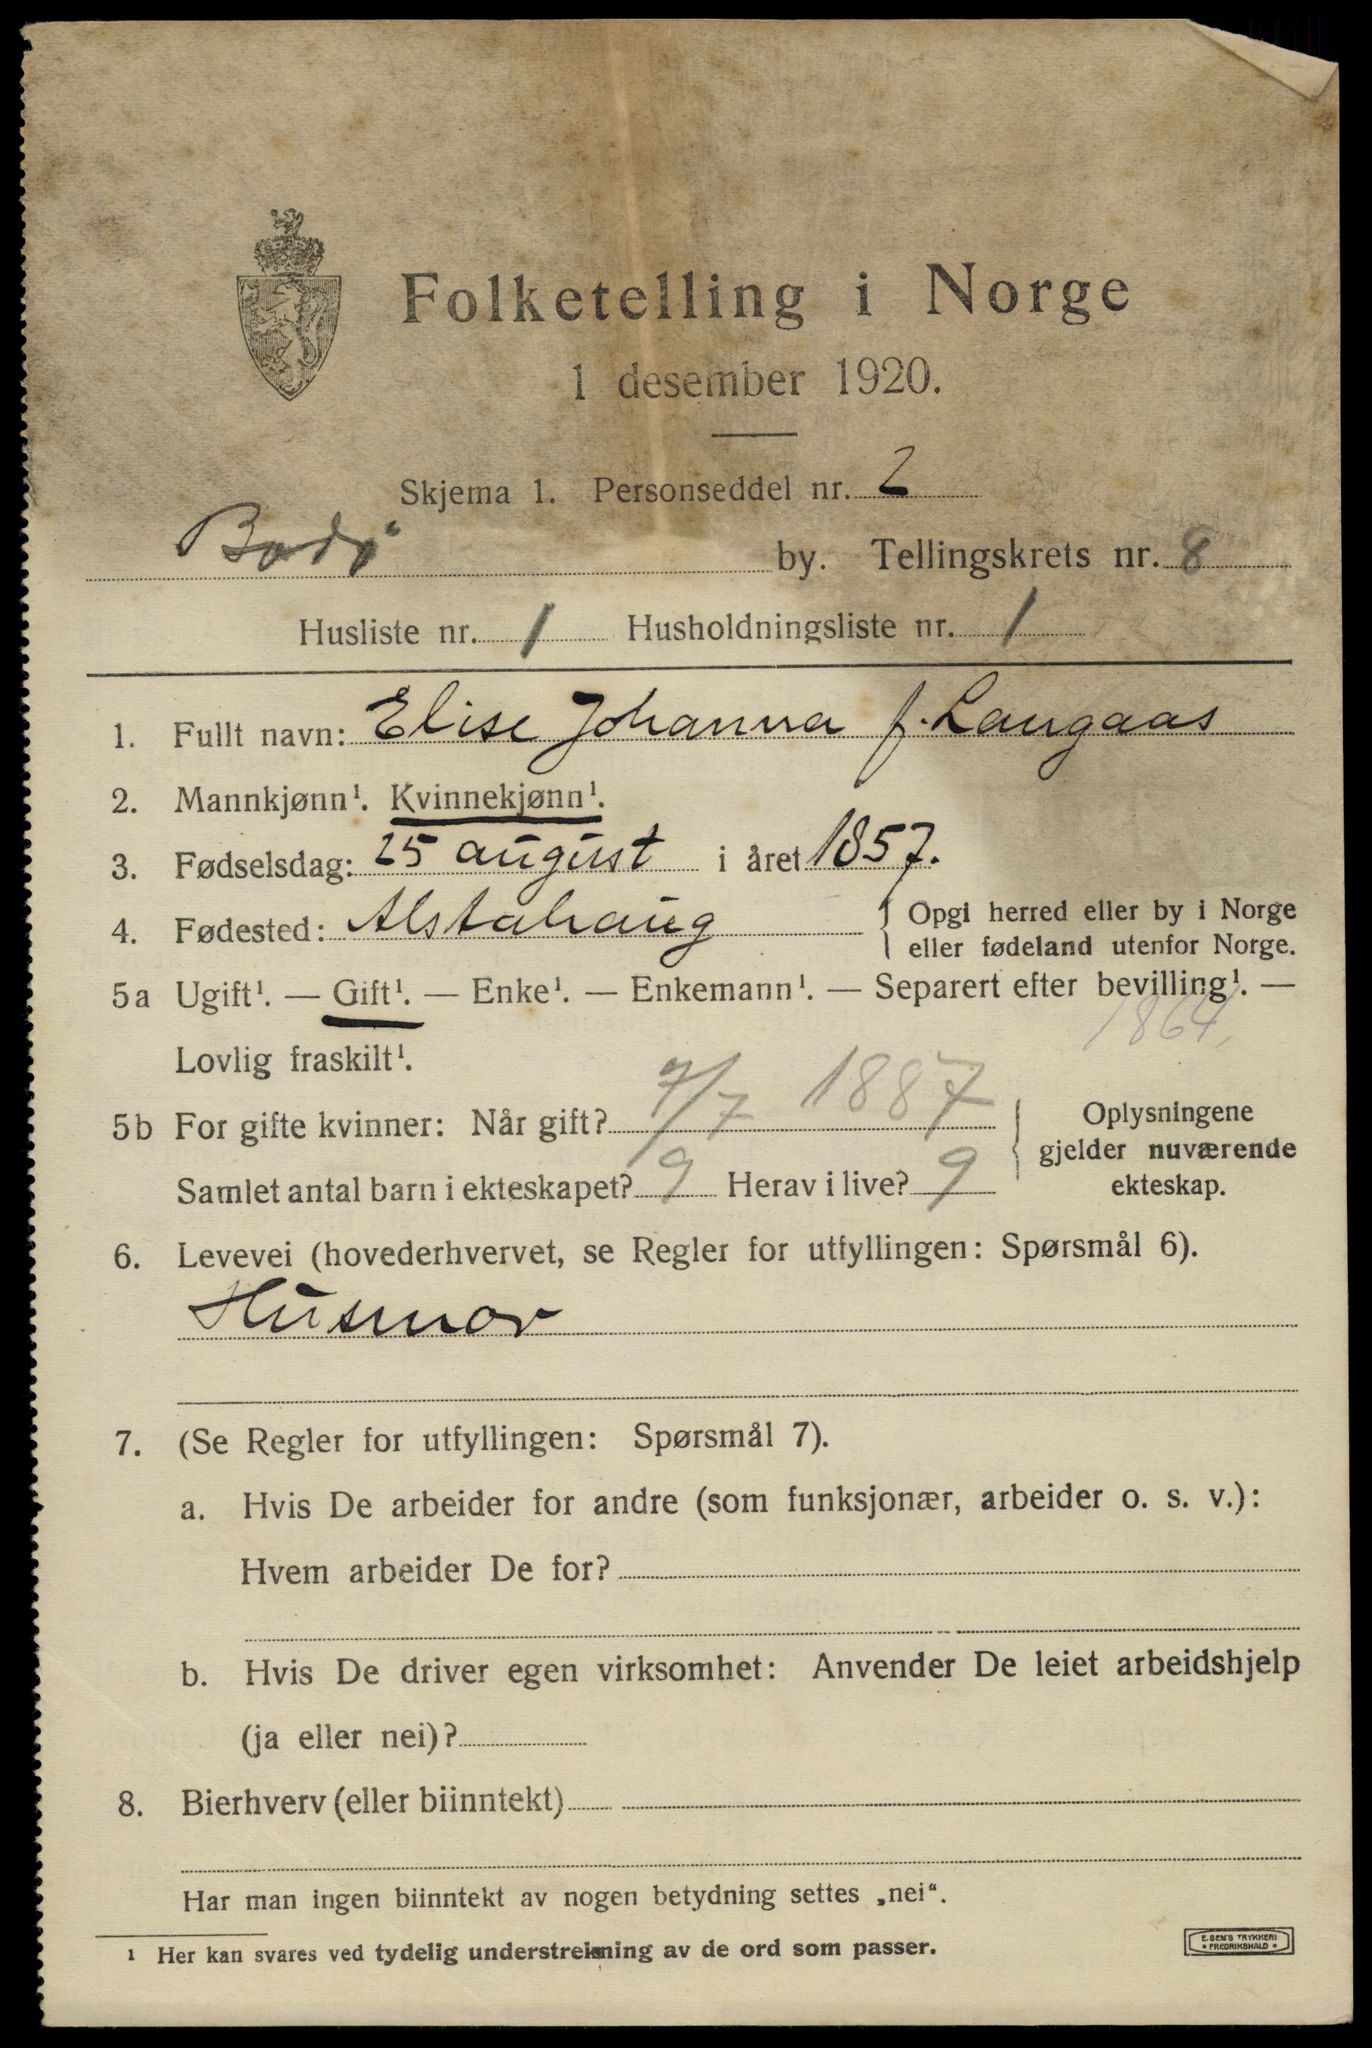 Folketelling i Norge
1 desember 1920.
Skjema 1. Personseddel nr. 2
Bodø by. Tellingskrets nr. 8
Husliste nr. 1 Husholdningsliste nr. 1
1. Fullt navn: Elise Johanna f. Langaas
2. Mannkjønn¹. Kvinnekjønn¹.
3. Fødselsdag: 25 august i året 1857.
4. Fødested: Alstahaug { Opgi herred eller by i Norge
eller fødeland utenfor Norge.
5a Ugift¹. — Gift¹. — Enke¹. — Enkemann¹. — Separert efter bevilling¹. —
1864,
Lovlig fraskilt¹.
5b For gifte kvinner: Når gift? 7/7 1887
Samlet antal barn i ekteskapet? 9 Herav i live? 9
} Oplysningene
gjelder nuværende
ekteskap.
6. Levevei (hovederhvervet, se Regler for utfyllingen: Spørsmål 6).
Husmor
7. (Se Regler for utfyllingen: Spørsmål 7).
a. Hvis De arbeider for andre (som funksjonær, arbeider o. s. v.):
Hvem arbeider De for?
b. Hvis De driver egen virksomhet: Anvender De leiet arbeidshjelp
(ja eller nei)?
8. Bierhverv (eller biinntekt)
Har man ingen biinntekt av nogen betydning settes „nei“.
¹ Her kan svares ved tydelig understrekning av de ord som passer.
E. SEM'S TRYKKERI
• FREDRIKSHALD •